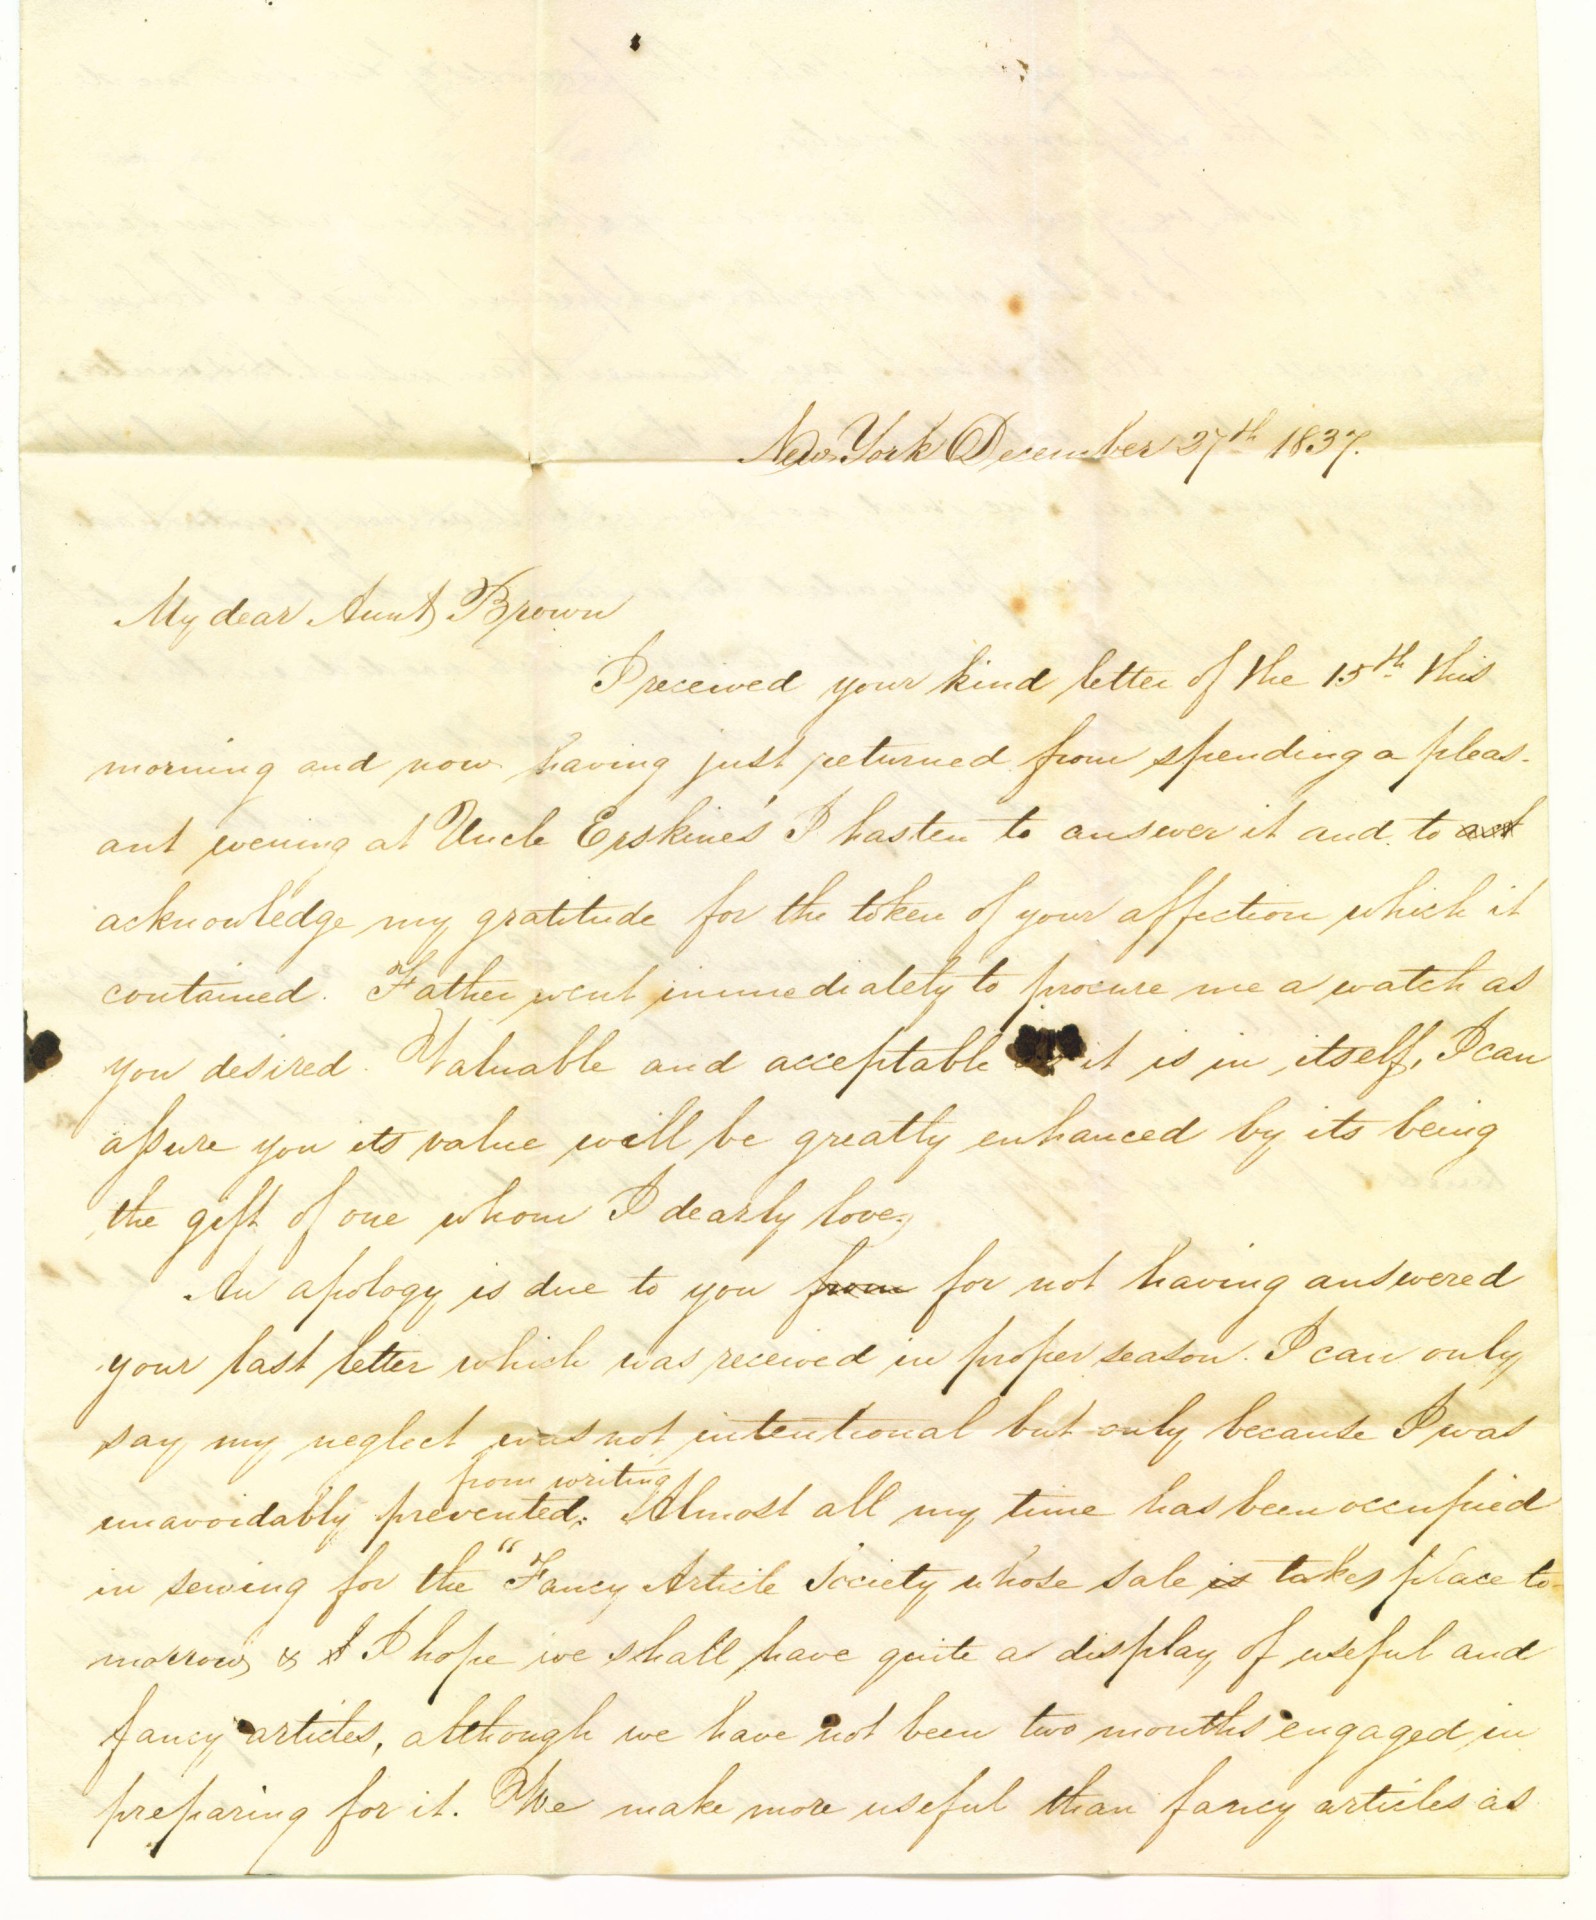 New York December 27th 1837.
My dear Aunt Brown
I received your kind letter of the 15th this
morning and now having just returned from spending a pleas-
ant evening at Uncle Erskine's I hasten to answer it and to
acknowledge my gratitude for the token of your affection which it
contained. Father went immediately to procure me a watch as
you desired. Valuable and acceptable it is in itself, I can
assure you its value will be greatly enhanced by its being
the gift of one whom I dearly love.
An apology is due to you from for not having answered
your last letter which was received in proper season. I can only
say my neglect was not intentional but only because I was
from writing
unavoidably prevented. Almost all my time has been occupied
in sewing for the "Fancy Article Society whose sale is takes place to-
morrow, & I I hope we shall have quite a display of useful and
fancy articles, although we have not been two months engaged in
preparing for it. We make more useful than fancy articles as